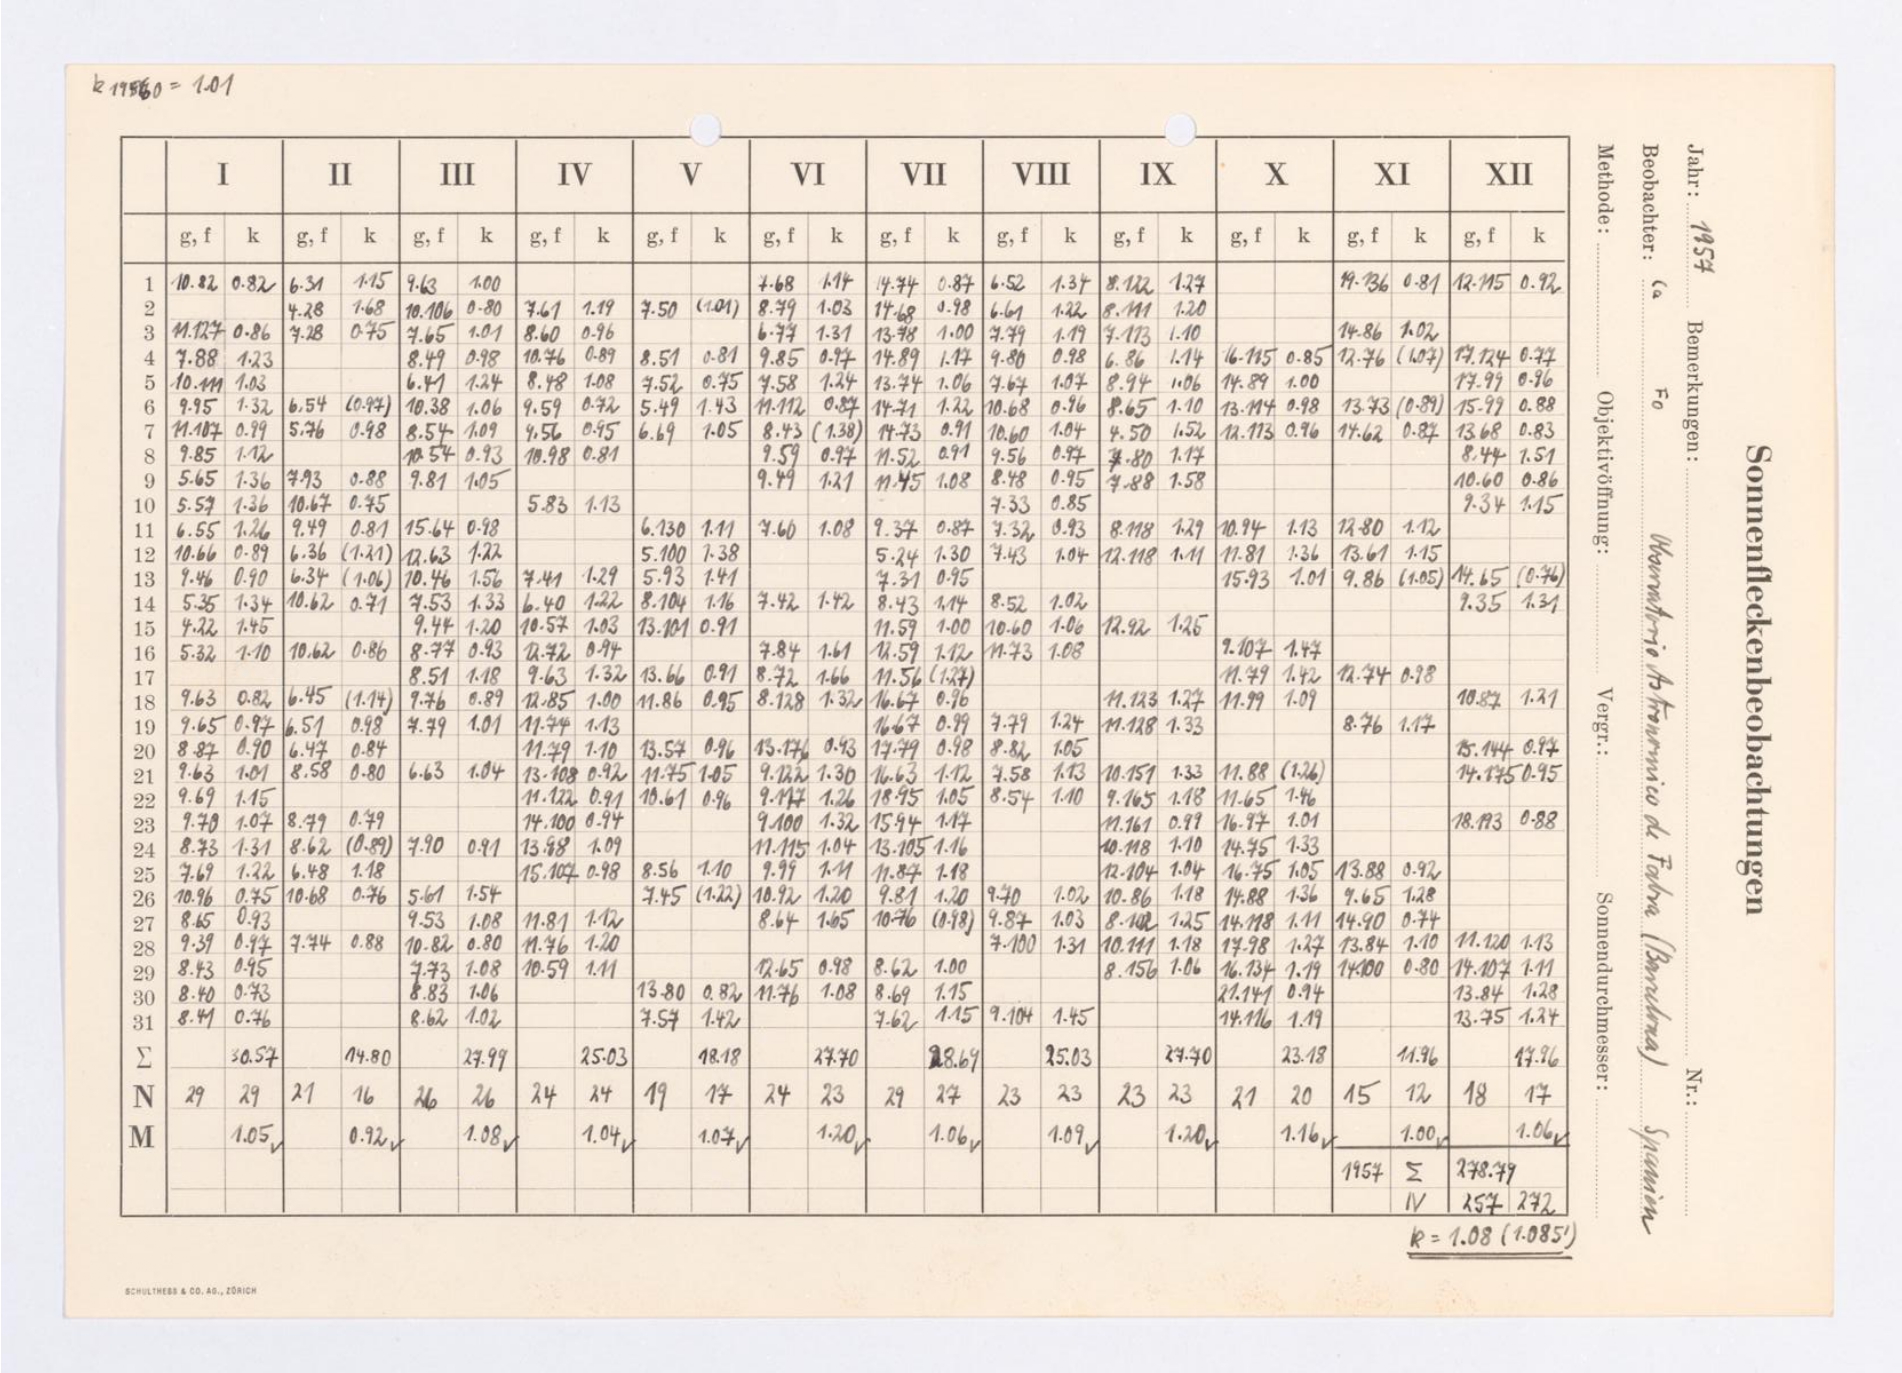 k 1960 = 1.01
I II III IV V VI VII VIII IX X XI XII
g, f k g, f k g, f k g, f k g, f k g, f k g, f k g, f k g, f k g, f k g, f k g, f k
1 10.82 0.82 6.31 1.15 9.63 1.00 7.68 1.14 14.74 0.87 6.52 1.34 8.122 1.27 19.136 0.81 12.115 0.92
2 4.28 1.68 10.106 0.80 7.61 1.19 7.50 (1.01) 8.79 1.03 14.68 0.98 6.61 1.22 8.111 1.20
3 11.127 0.86 7.28 0.75 7.65 1.01 8.60 0.96 6.77 1.31 13.78 1.00 7.79 1.19 7.113 1.10 14.86 1.02
4 7.88 1.23 8.49 0.98 10.76 0.89 8.51 0.81 9.85 0.97 14.89 1.17 9.80 0.98 6.86 1.14 16.115 0.85 12.76 (1.07) 17.124 0.77
5 10.111 1.03 6.41 1.24 8.48 1.08 7.52 0.75 7.58 1.24 13.74 1.06 7.67 1.07 8.94 1.06 14.89 1.00 17.99 0.96
6 9.95 1.32 6.54 (0.97) 10.38 1.06 9.59 0.72 5.49 1.43 11.112 0.87 14.71 1.22 10.68 0.96 8.65 1.10 13.114 0.98 13.73 (0.89) 15.99 0.88
7 11.107 0.99 5.76 0.98 8.54 1.09 9.56 0.95 6.69 1.05 8.43 (1.38) 14.73 0.91 10.60 1.04 4.50 1.52 12.113 0.96 14.62 0.87 13.68 0.83
8 9.85 1.12 10.54 0.93 10.98 0.81 9.59 0.97 11.52 0.91 9.56 0.97 7.80 1.17 8.44 1.51
9 5.65 1.36 7.93 0.88 9.81 1.05 9.49 1.21 11.45 1.08 8.48 0.95 7.88 1.58 10.60 0.86
10 5.57 1.36 10.67 0.75 5.83 1.13 7.33 0.85 9.34 1.15
11 6.55 1.26 9.49 0.81 15.64 0.98 6.130 1.11 7.60 1.08 9.37 0.87 7.32 0.93 8.118 1.29 10.94 1.13 12.80 1.12
12 10.66 0.89 6.36 (1.21) 12.63 1.22 5.100 1.38 5.24 1.30 7.43 1.04 12.118 1.11 11.81 1.36 13.61 1.15
13 9.46 0.90 6.34 (1.06) 10.46 1.56 7.41 1.29 5.93 1.41 7.31 0.95 15.93 1.01 9.86 (1.05) 14.65 (0.76)
14 5.35 1.34 10.62 0.71 7.53 1.33 6.40 1.22 8.104 1.16 7.42 1.42 8.43 1.14 8.52 1.02 9.35 1.31
15 4.22 1.45 9.44 1.20 10.57 1.03 13.101 0.91 11.59 1.00 10.60 1.06 12.92 1.25
16 5.32 1.10 10.62 0.86 8.77 0.93 12.72 0.94 7.84 1.61 12.59 1.12 11.73 1.08 9.107 1.47
17 8.51 1.18 9.63 1.32 13.66 0.91 8.72 1.66 11.56 (1.27) 11.79 1.42 12.74 0.98
18 9.63 0.82 6.45 (1.14) 9.76 0.89 12.85 1.00 11.86 0.95 8.128 1.32 16.67 0.96 11.123 1.27 11.99 1.09 10.87 1.21
19 9.65 0.97 6.51 0.98 7.79 1.01 11.74 1.13 16.67 0.99 7.79 1.24 11.128 1.33 8.76 1.17
20 8.87 0.90 6.47 0.84 11.79 1.10 13.57 0.96 13.176 0.93 17.79 0.98 8.82 1.05 15.144 0.97
21 9.63 1.01 8.58 0.80 6.63 1.04 13.108 0.92 11.75 1.05 9.122 1.30 16.63 1.12 7.58 1.13 10.151 1.33 11.88 (1.26) 14.175 0.95
22 9.69 1.15 11.122 0.91 10.61 0.96 9.117 1.26 18.95 1.05 8.54 1.10 9.165 1.18 11.65 1.46
23 9.70 1.07 8.79 0.79 14.100 0.94 9.100 1.32 15.94 1.17 11.161 0.99 16.97 1.01 18.193 0.88
24 8.73 1.31 8.62 (0.89) 7.90 0.91 13.98 1.09 11.115 1.04 13.105 1.16 10.118 1.10 14.75 1.33
25 7.69 1.22 6.48 1.18 15.107 0.98 8.56 1.10 9.99 1.11 11.87 1.18 12.104 1.04 16.75 1.05 13.88 0.92
26 10.96 0.75 10.68 0.76 5.61 1.54 7.45 (1.22) 10.92 1.20 9.81 1.20 9.70 1.02 10.86 1.18 14.88 1.36 9.65 1.28
27 8.65 0.93 9.53 1.08 11.81 1.12 8.64 1.65 10.76 (0.98) 9.87 1.03 8.102 1.25 14.118 1.11 14.90 0.74
28 9.39 0.97 7.74 0.88 10.82 0.80 11.76 1.20 7.100 1.31 10.111 1.18 17.98 1.27 13.84 1.10 11.120 1.13
29 8.43 0.95 7.73 1.08 10.59 1.11 12.65 0.98 8.62 1.00 8.156 1.06 16.134 1.19 14.100 0.80 14.107 1.11
30 8.40 0.73 8.83 1.06 13.80 0.82 11.76 1.08 8.69 1.15 21.141 0.94 13.84 1.28
31 8.41 0.76 8.62 1.02 7.57 1.42 7.62 1.15 9.104 1.45 14.116 1.19 13.75 1.24
Σ 30.57 14.80 27.99 25.03 18.18 27.70 28.69 25.03 27.70 23.18 11.96 17.96
N 29 29 21 16 26 26 24 24 19 17 24 23 29 27 23 23 23 23 21 20 15 12 18 17
M 1.05 0.92 1.08 1.04 1.07 1.20 1.06 1.09 1.20 1.16 1.00 1.06
1957 Σ 278.79
N 257 272
k = 1.08 (1.085')
SCHULTHESS & CO. AG., ZÜRICH
Sonnenfleckenbeobachtungen
Jahr: 1957 Bemerkungen: Nr.:
Beobachter: Ca Fo Observatorio Astronomico de Fabra (Barcelona) Spanien
Methode: Objektivöffnung: Vergr.: Sonnendurchmesser: